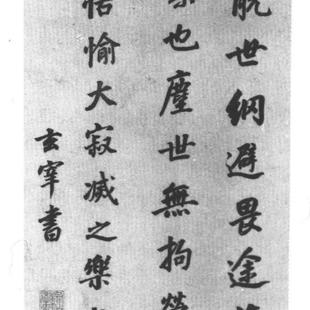 脱世網避畏途
也塵世無拘
恬愉大寂滅之樂
玄宰書